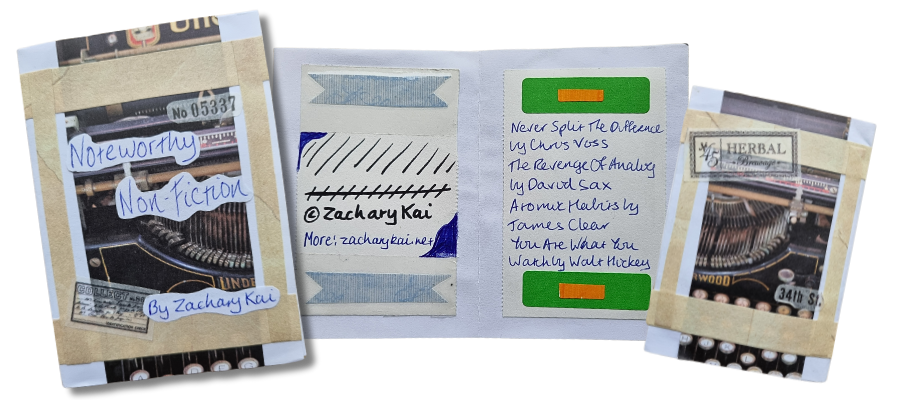 Un
No 05337
Noteworthy
Non-Fiction
UNDE
COLLEGE
IDENTIFICATION CARD
By Zachary Kai
© Zachary Kai
More: zacharykai.net
Never Split The Difference
by Chris Voss
The Revenge Of Analog
by David Sax
Atomic Habits by
James Clear
You Are What You
Watch by Walt Hickey
No 45
HERBAL
WOOD
34th St.